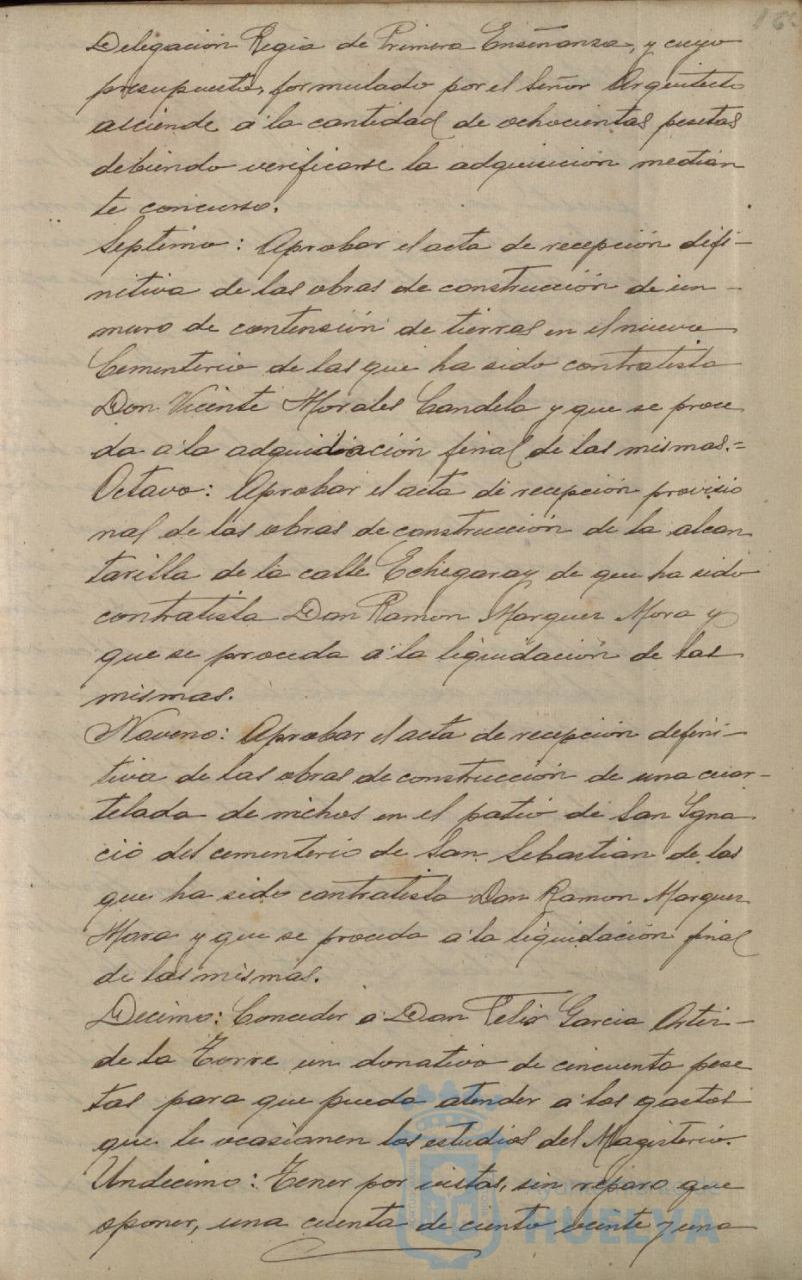 Delegación Regia de Primera Enseñanza, y cuyo
presupuesto, formulado por el Señor Arquitecto
asciende á la cantidad de ochocientas pesetas
debiendo verificarse la adquisición median
te concurso.
Septimo: Aprobar el acta de recepción defi-
nitiva de las obras de construcción de un-
muro de contensión de tierras en el nuevo
Cementerio de las que ha sido contratista
Don Vicente Morales Candela y que se proce
da á la adquidiación final de las mismas.=
Octavo: Aprobar el acta de recepción provisio
nal de las obras de construcción de la alcan
tarilla de la calle Echegaray de que ha sido
contratista Don Ramon Marquez Mora y
que se proceda á la liquidación de las
mismas.
Noveno: Aprobar el acta de recepción defini-
tiva de las obras de construcción de una cuar-
telada de nichos en el patio de San Igna
cio del cementerio de San Sebastian de las
que ha sido contratista Don Ramon Marquez
Mora y que se proceda á la liquidación final
de las mismas.
Decimo: Conceder á Don Felix Garcia
de la Torre un donativo de cincuenta pese
tas para que pueda atender a los gastos
que le ocasionen los estudios del Magisterio.
Undecimo: Tener por vistas, sin reparo que
oponer, una cuenta de ciento veinte y una
HUELVA